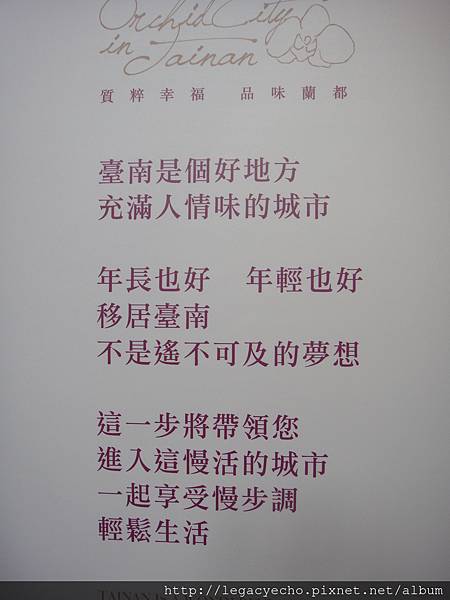 Orchid City
in Tainan
質粹幸福 品味蘭都
臺南是個好地方
充滿人情味的城市
年長也好 年輕也好
移居臺南
不是遙不可及的夢想
這一步將帶領您
進入這慢活的城市
一起享受慢步調
輕鬆生活
http://legacyecho.pixnet.net/album